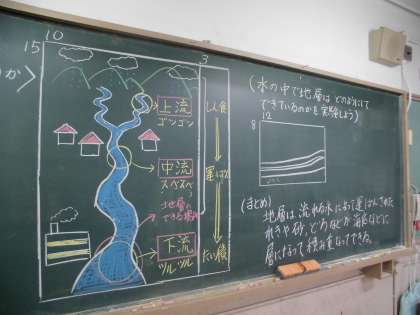 か〉
15
10
3
上流
ゴツゴツ
中流
スベスベ
地層が
できる場所
下流
ツルツル
しん食
運ぱん
たい積
(水の中で地層は どのようにして
できているのかを実験しよう)
12
8
(まとめ)
地層は、流れる水によって運ぱんされた
れきや砂、どろなどが海底などに
層になって積み重なってできる。